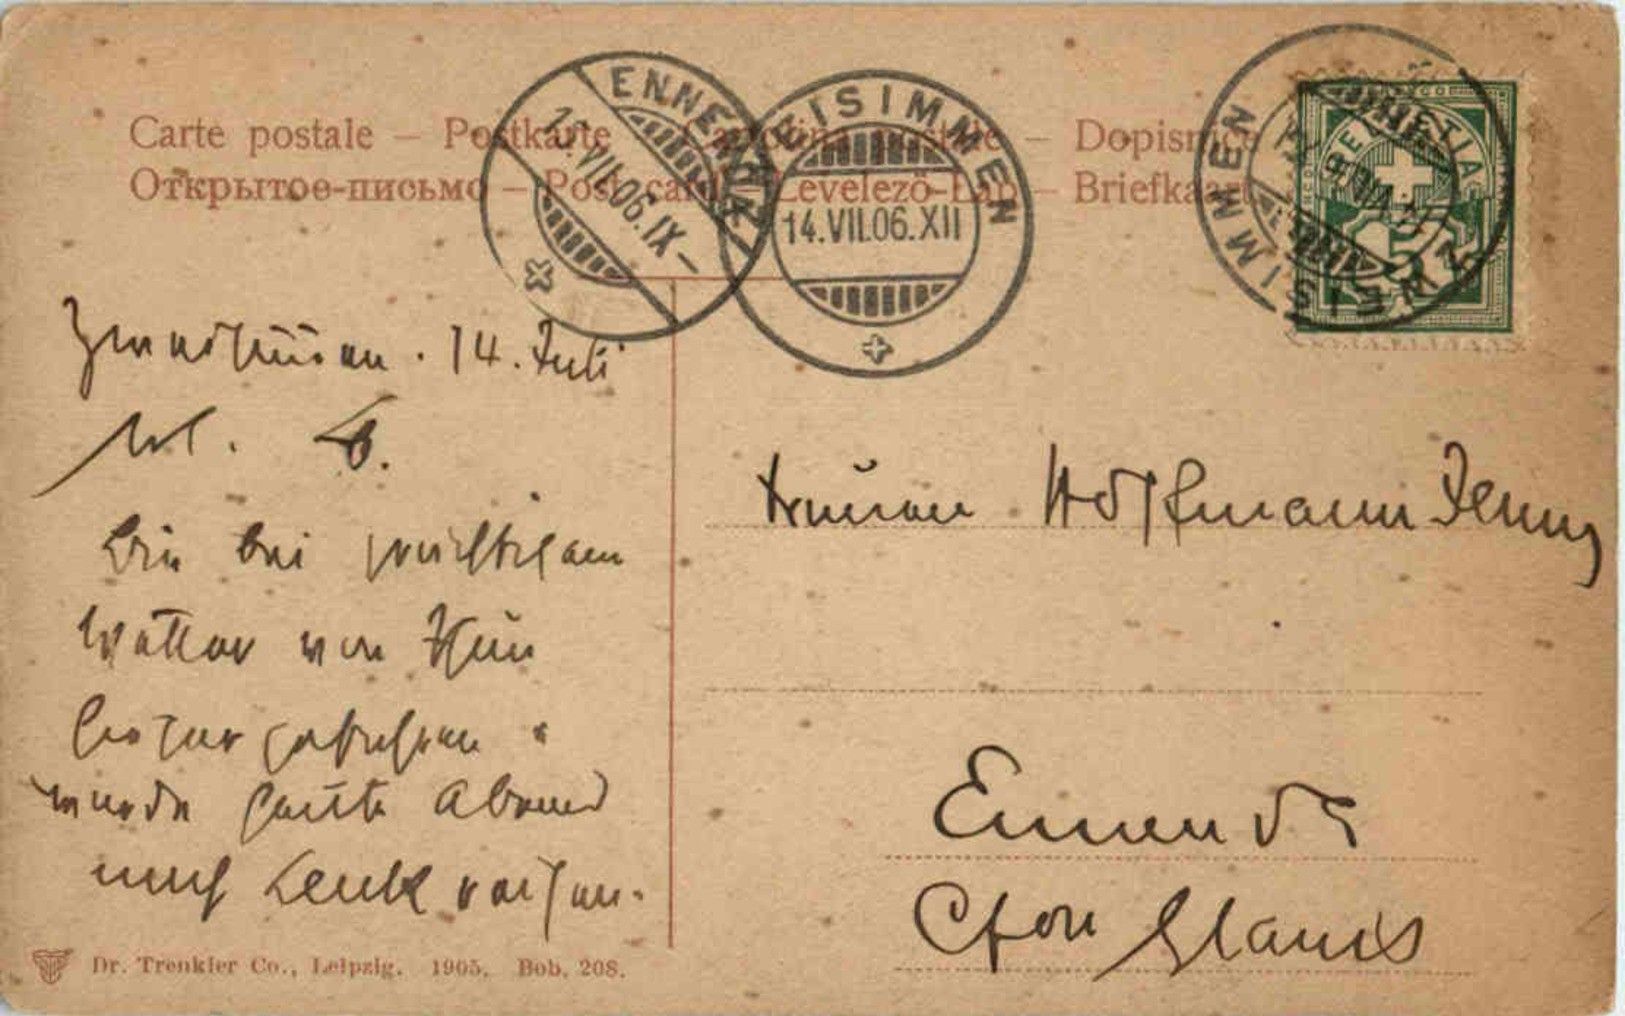 Carte postale – Postkarte – Cartolina postale – Dopisnice
Открытое-письмо – Post card – Levelező-Lap – Briefkaart
ENNENDA
VII.06.IX–
ZWEISIMMEN
14.VII.06.XII
ZWEISIMMEN
HELVETIA
5
Zweisimmen. 14. Juli
bin bei prächtigem
Wetter von Thun
hierher gefahren &
werde heute Abend
nach Lenk reisen.
Hoffmann Jenny
Ennenda
Cton Glarus
Dr. Trenkler Co., Leipzig. 1905. Bob. 208.